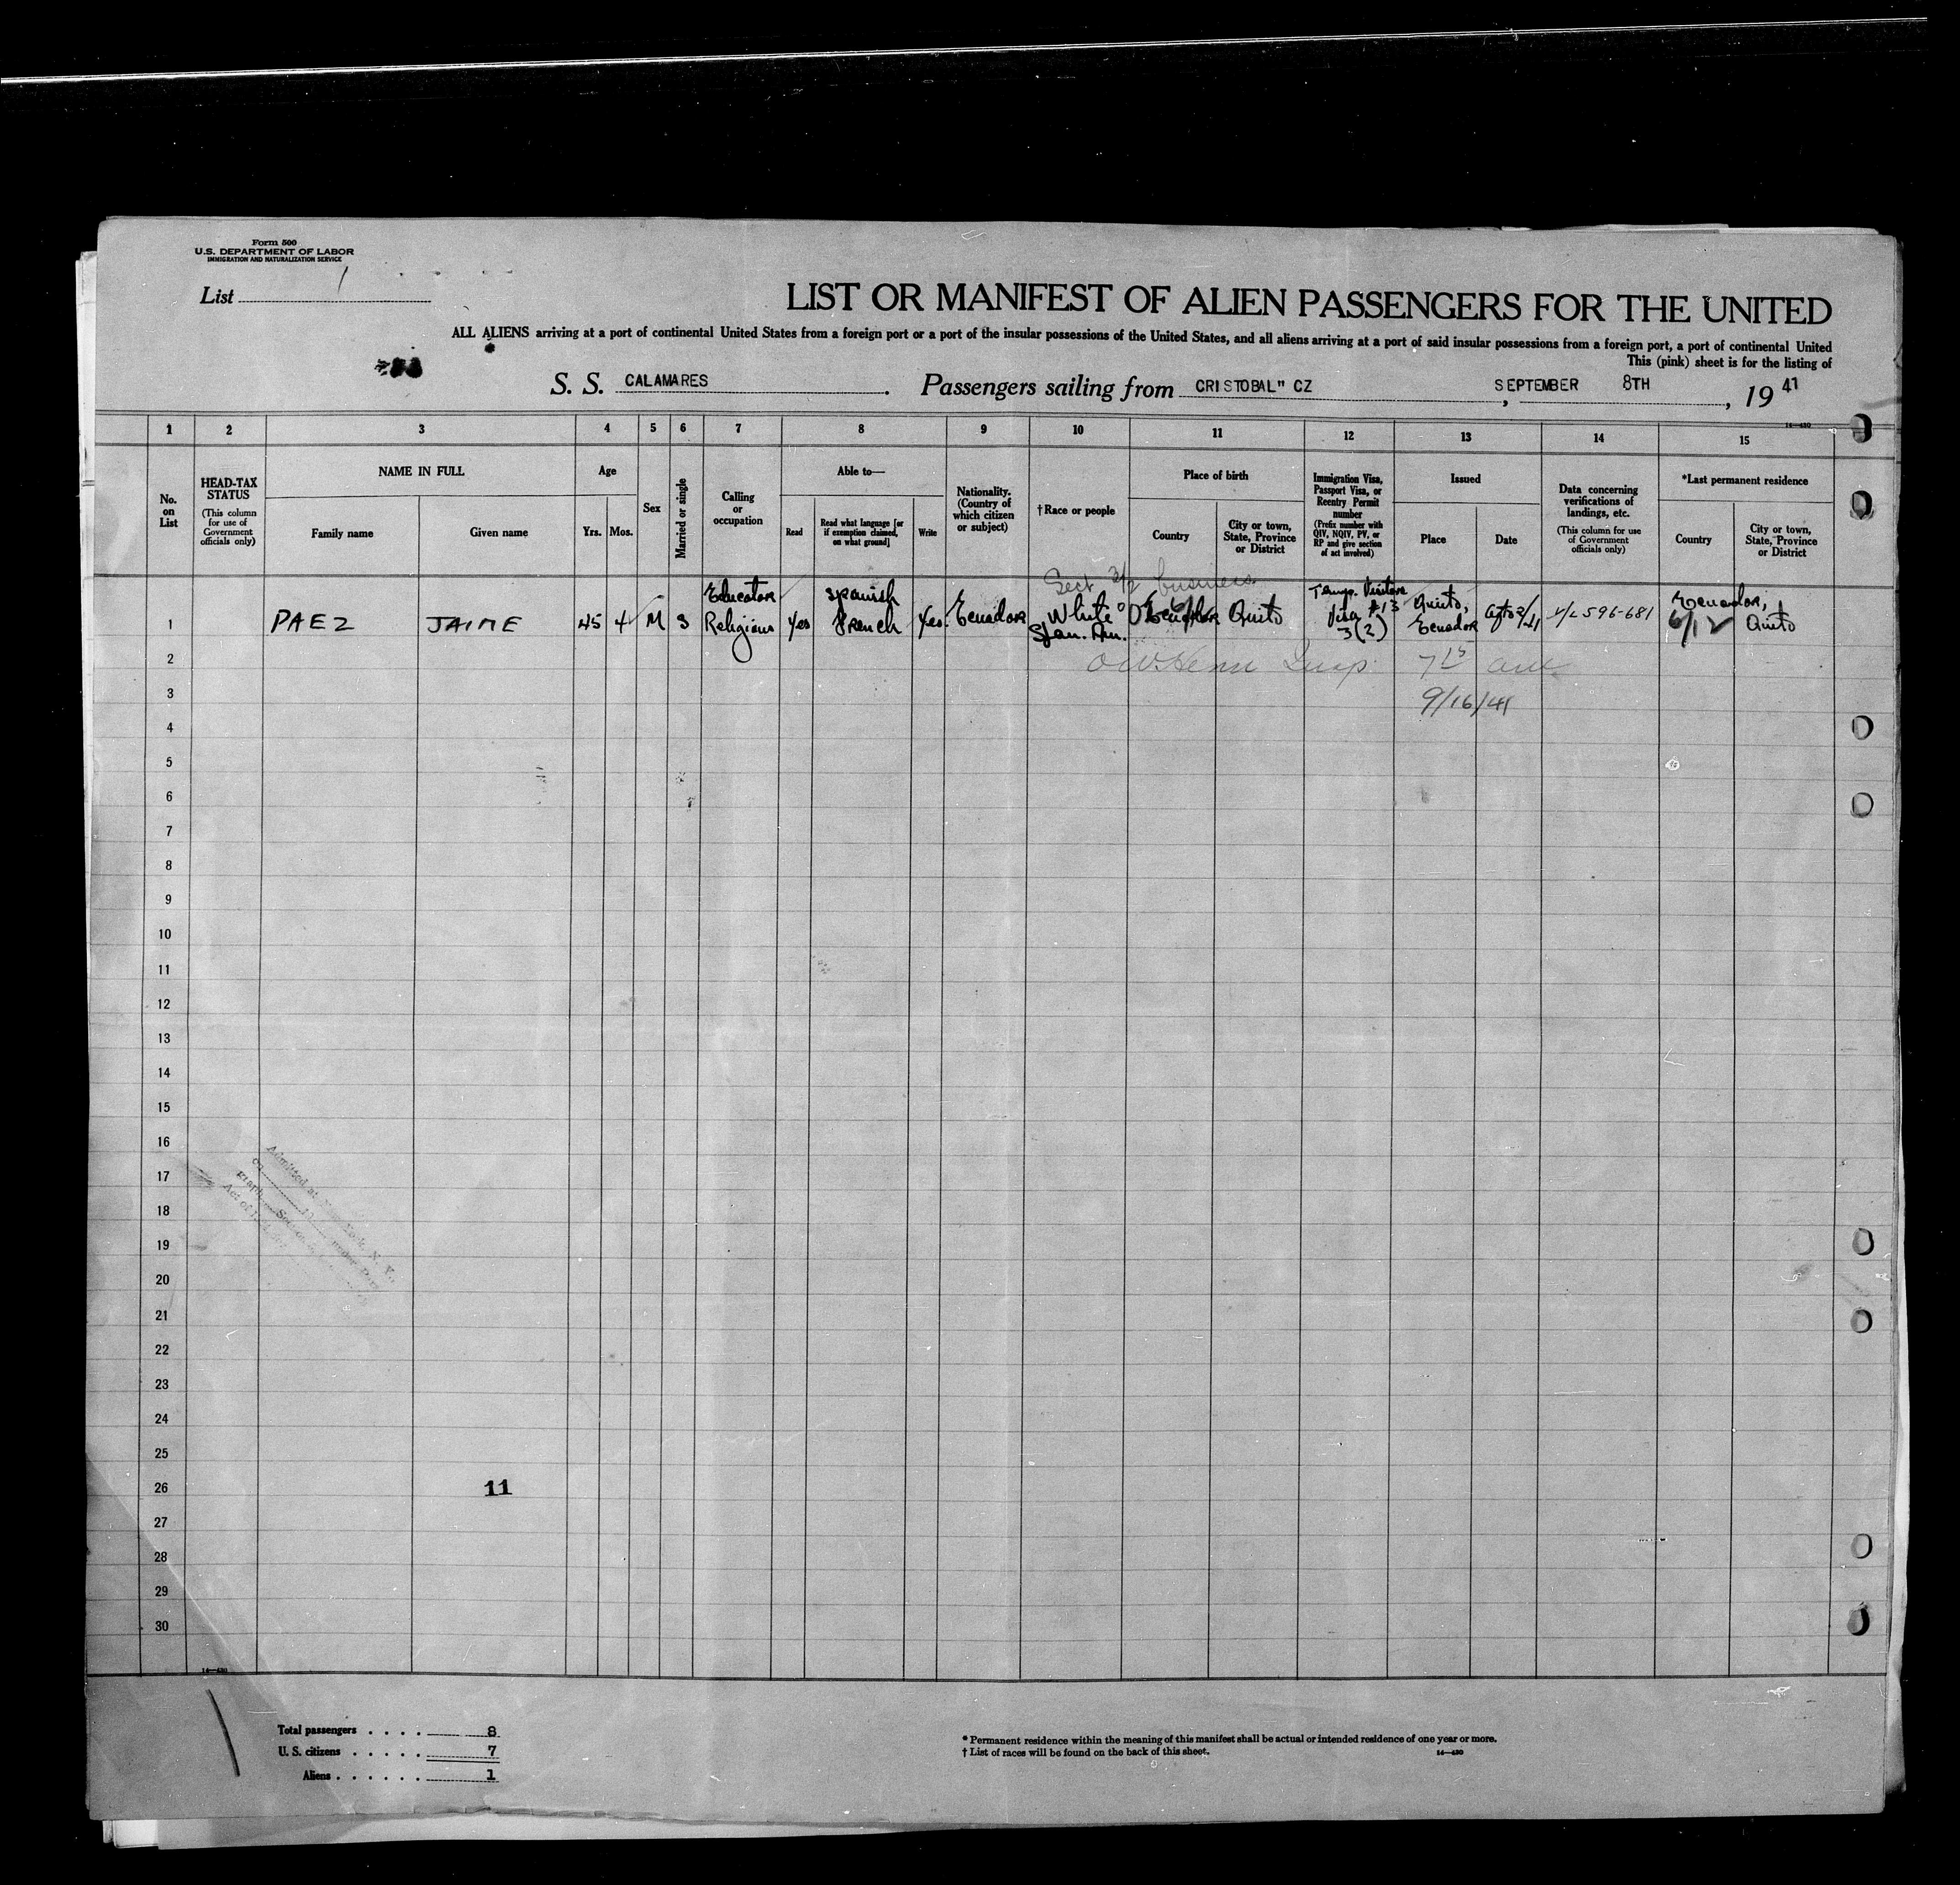 Form 500
U.S. DEPARTMENT OF LABOR
IMMIGRATION AND NATURALIZATION SERVICE
List 1
LIST OR MANIFEST OF ALIEN PASSENGERS FOR THE UNITED
ALL ALIENS arriving at a port of continental United States from a foreign port or a port of the insular possessions of the United States, and all aliens arriving at a port of said insular possessions from a foreign port, a port of continental United
This (pink) sheet is for the listing of
S. S. CALAMARES. Passengers sailing from CRISTOBAL" CZ, SEPTEMBER 8TH, 1941
16—430
1 2 3 4 5 6 7 8 9 10 11 12 13 14 15
No. on List
HEAD-TAX STATUS
(This column for use of Government officials only)
NAME IN FULL
Family name
Given name
Age
Yrs. Mos.
Sex
Married or single
Calling or occupation
Able to—
Read
Read what language [or if exemption claimed, on what ground]
Write
Nationality. (Country of which citizen or subject)
†Race or people
Place of birth
Country
City or town, State, Province or District
Immigration Visa, Passport Visa, or Reentry Permit number
(Prefix number with QIV, NQIV, PV, or RP and give section of act involved)
Issued
Place
Date
Data concerning verifications of landings, etc.
(This column for use of Government officials only)
*Last permanent residence
Country
City or town, State, Province or District
Sect 3/2 business
1 PAEZ JAIME 45 4 M S Educator Religious Yes Spanish French Yes Ecuador White Span. Am. Ecuador Quito Temp. Visitors Visa #13 3(2) Quito, Ecuador 4/2596-681 Ecuador, 6/12 Quito
2
3 9/16/41
4
5
6
7
8
9
10
11
12
13
14
15
16
17
18
19
20
21
22
23
24
25
26 11
27
28
29
30
16—430
Admitted at New York, N. Y.,
Total passengers . . . . 8
U. S. citizens . . . . . 7
Aliens . . . . . . 1
* Permanent residence within the meaning of this manifest shall be actual or intended residence of one year or more.
† List of races will be found on the back of this sheet. 16—430